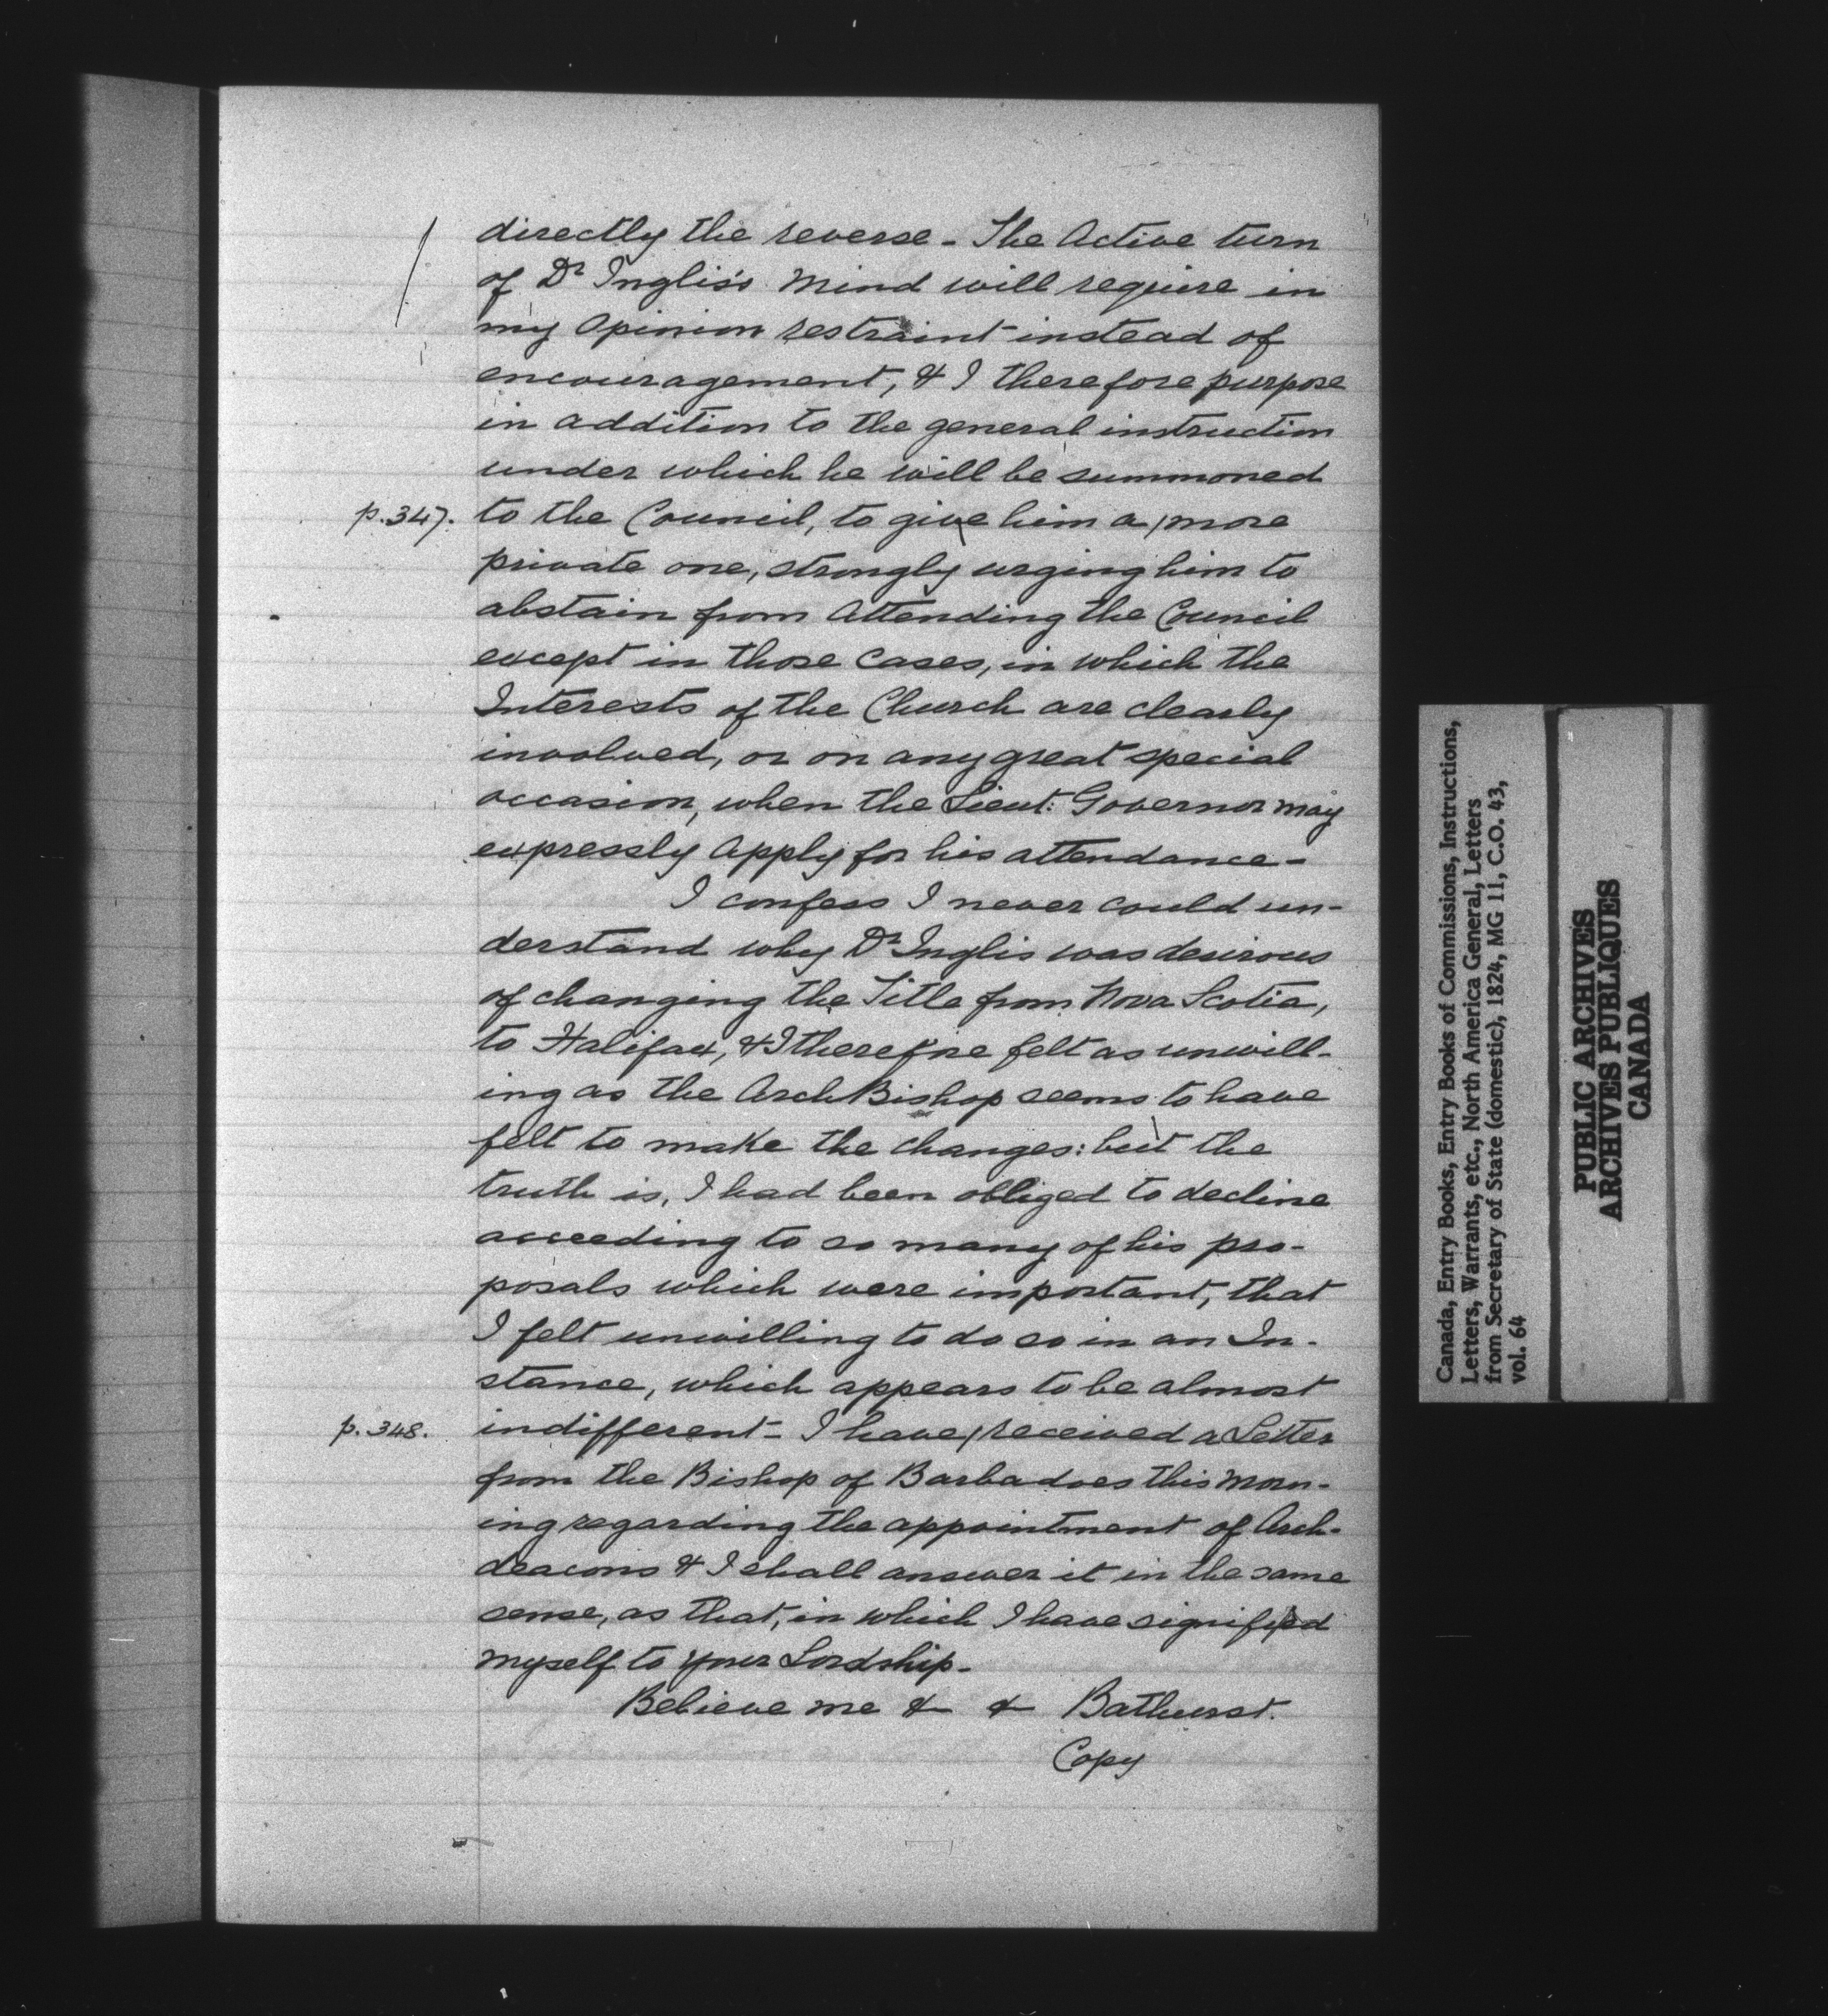 directly the reverse - The Active turn
of Dr Inglis's Mind will require in
my Opinion restraint instead of
encouragement, & I therefore purpose
in addition to the general instruction
under which he will be summoned
p.347. to the Council, to give him a / more
private one, strongly urging him to
abstain from Attending the Council
except in those Cases, in which the
Interests of the Church are clearly
involved, or on any great special
occasion, when the Lieut: Governor may
expressly Apply for his attendance -
I confess I never could un-
derstand why Dr Inglis was desirous
of changing the Title from Nova Scotia,
to Halifax, & I therefore felt as unwill-
ing as the ArchBishop seems to have
felt to make the changes: but the
truth is, I had been obliged to decline
acceeding to so many of his pro-
posals which were important, that
I felt unwilling to do so in an In-
stance, which appears to be almost
p.348. indifferent - I have / received a Letter
from the Bishop of Barbadoes this Morn-
ing regarding the appointment of Arch-
deacons & I shall answer it in the same
sense, as that, in which I have signified
myself to your Lordship -
Believe me & & Bathurst.
Copy
Canada, Entry Books, Entry Books of Commissions, Instructions,
Letters, Warrants, etc., North America General, Letters
from Secretary of State (domestic), 1824, MG 11, C.O. 43,
vol. 64
PUBLIC ARCHIVES
ARCHIVES PUBLIQUES
CANADA